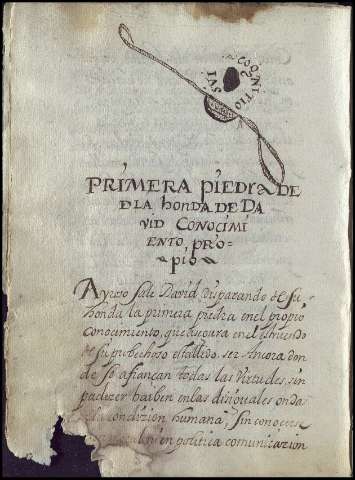 COGNITIO SVI
PRIMERA PIEDRA DE
DLA HONDA DE DA
VID CONOCIMI
ENTO, PRO-
PIO
Ayroso Sale David disparando de su
honda la primera piedra en el propio
conocimiento, que asegura en el estruendo
de su probechoso estallido, ser Ancora don
de se afiançan todas las Virtudes, sin
padezer baiben en las disiguales ondas
condizion humana; Sin conocers
en politica comunicazion